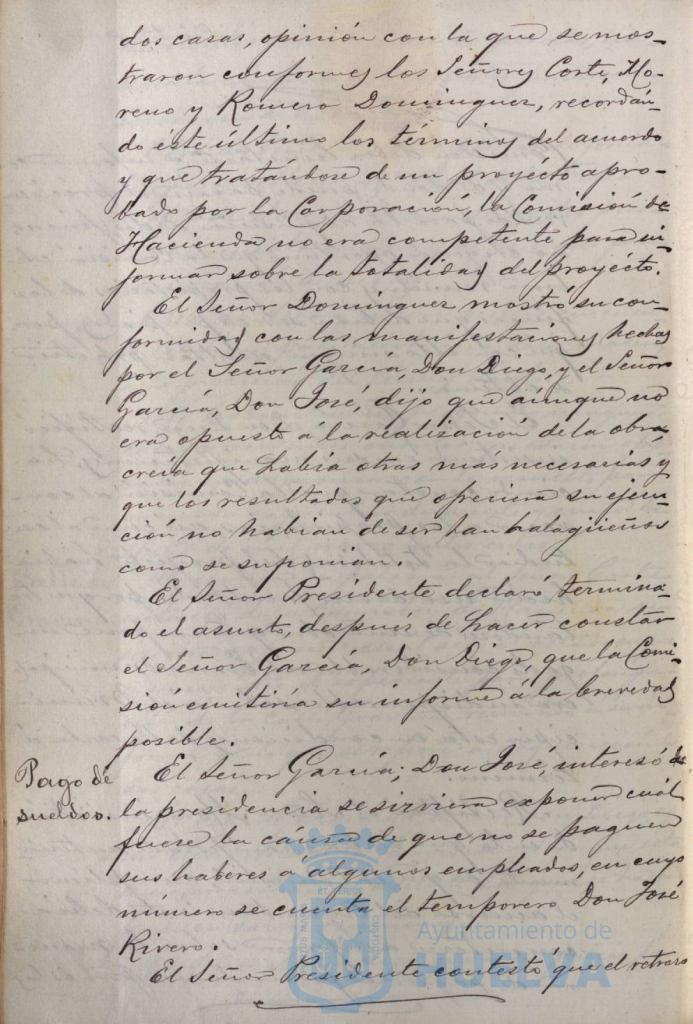 dos casas, opinión con la que se mos-
traron conformes los Señores Corte, Mo-
reno y Romero Dominguez, recordán-
do éste último los términos del acuerdo
y que tratándose de un proyécto apro-
bado por la Corporación, la Comisión de
Hacienda no era competente para in-
formar sobre la totalidad del proyécto.
El Señor Dominguez mostró su con-
formidad con las manifestaciones hechas
por el Señor García, Don Diego, y el Señor
García, Don José, dijo que aúnque no
era opuesto á la realización de la obra,
creia que había otras más necesarias y
que los resultados que ofreciera su ejecu-
ción no habian de ser tan halagüeños
como se suponian.
El Señor Presidente declaró termina-
do el asunto, después de hacer constar
el Señor García, Don Diego, que la Comi-
sión emitiría su informe á la brevedad
posible.
Pago de
sueldos.
El Señor García, Don José, interesó de
la presidencia se sirviera exponer cuál
fuese la cáusa de que no se paguen
sus haberes á algunos empleados, en cuyo
número se cuenta el temporero Don José
Rivero.
El Señor Presidente contestó que el retraso
Ayuntamiento de
HUELVA